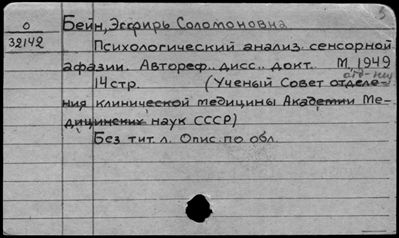 5
О Бейн, Эсфирь Соломоновна
32142
Психологический анализ сенсорной
афазии. Автореф. дисс. докт. М, 1949
14 стр. (Ученый Совет отделе-
ния клинической медицины Академии Ме-
дицинских наук СССР)
Без тит. л. Опис. по обл.